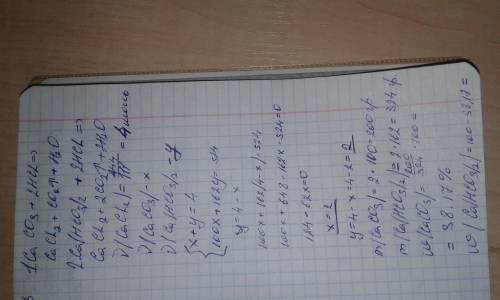 1) CaCO3 + 2HCl =>
CaCl2 + CO2↑ + H2O
2) Ca(HCO3)2 + 2HCl =>
CaCl2 + 2CO2↑ + 2H2O
ν(CaCl2) = 444/111 = 4 моль
ν(CaCO3) - x
ν(Ca(HCO3)2 - y
{ x + y = 4
100x + 162y = 524
y = 4 - x
100x + 162(4 - x) = 524
100x + 648 - 162x - 524 = 0
124 - 62x = 0
x = 2
y = 4 - x = 4 - 2 = 2
m(CaCO3) = 2 · 100 = 200 гр
m(Ca(HCO3)2) = 2 · 162 = 324 гр
ω(CaCO3) = 200/524 · 100 =
= 38.17%
ω(Ca(HCO3)2) = 100 - 38,17 =